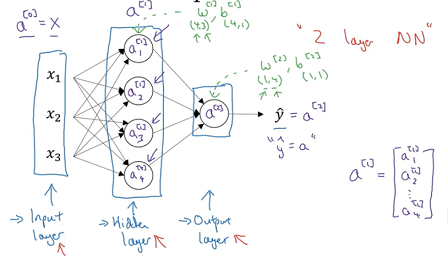 a^[0] = X
a^[1]
w^[1], b^[1]
(4,3) (4,1)
"2 layer NN"
x₁
x₂
x₃
a₁^[1]
a₂^[1]
a₃^[1]
a₄^[1]
w^[2], b^[2]
(1,4) (1,1)
a^[2]
ŷ = a^[2]
ŷ = a"
a^[1] = [a₁^[1]
a₂^[1]
⋮
a₄^[1]]
→ Input
layer
→ Hidden
layer
→ Output
layer